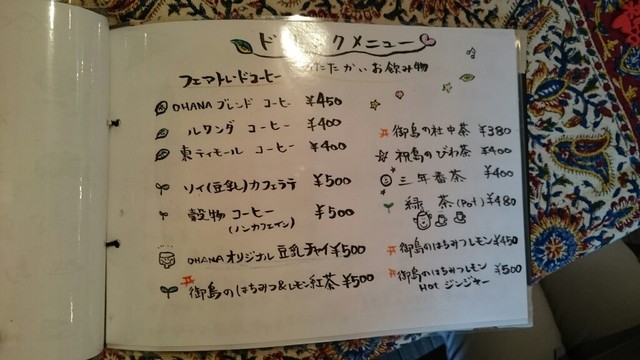 ドリンクメニュー
あたたかいお飲み物
フェアトレードコーヒー
OHANAブレンド コーヒー ¥450
ルワンダ コーヒー ¥400
東ティモール コーヒー ¥400
ソイ(豆乳)カフェラテ ¥500
穀物コーヒー ¥500
(ノンカフェイン)
OHANAオリジナル 豆乳チャイ ¥500
御島のはちみつ&レモン紅茶 ¥500
御島の杜中茶 ¥380
祝島のびわ茶 ¥400
三年番茶 ¥400
緑茶(Pot) ¥480
御島のはちみつレモン ¥450
御島のはちみつレモン
Hot ジンジャー ¥500